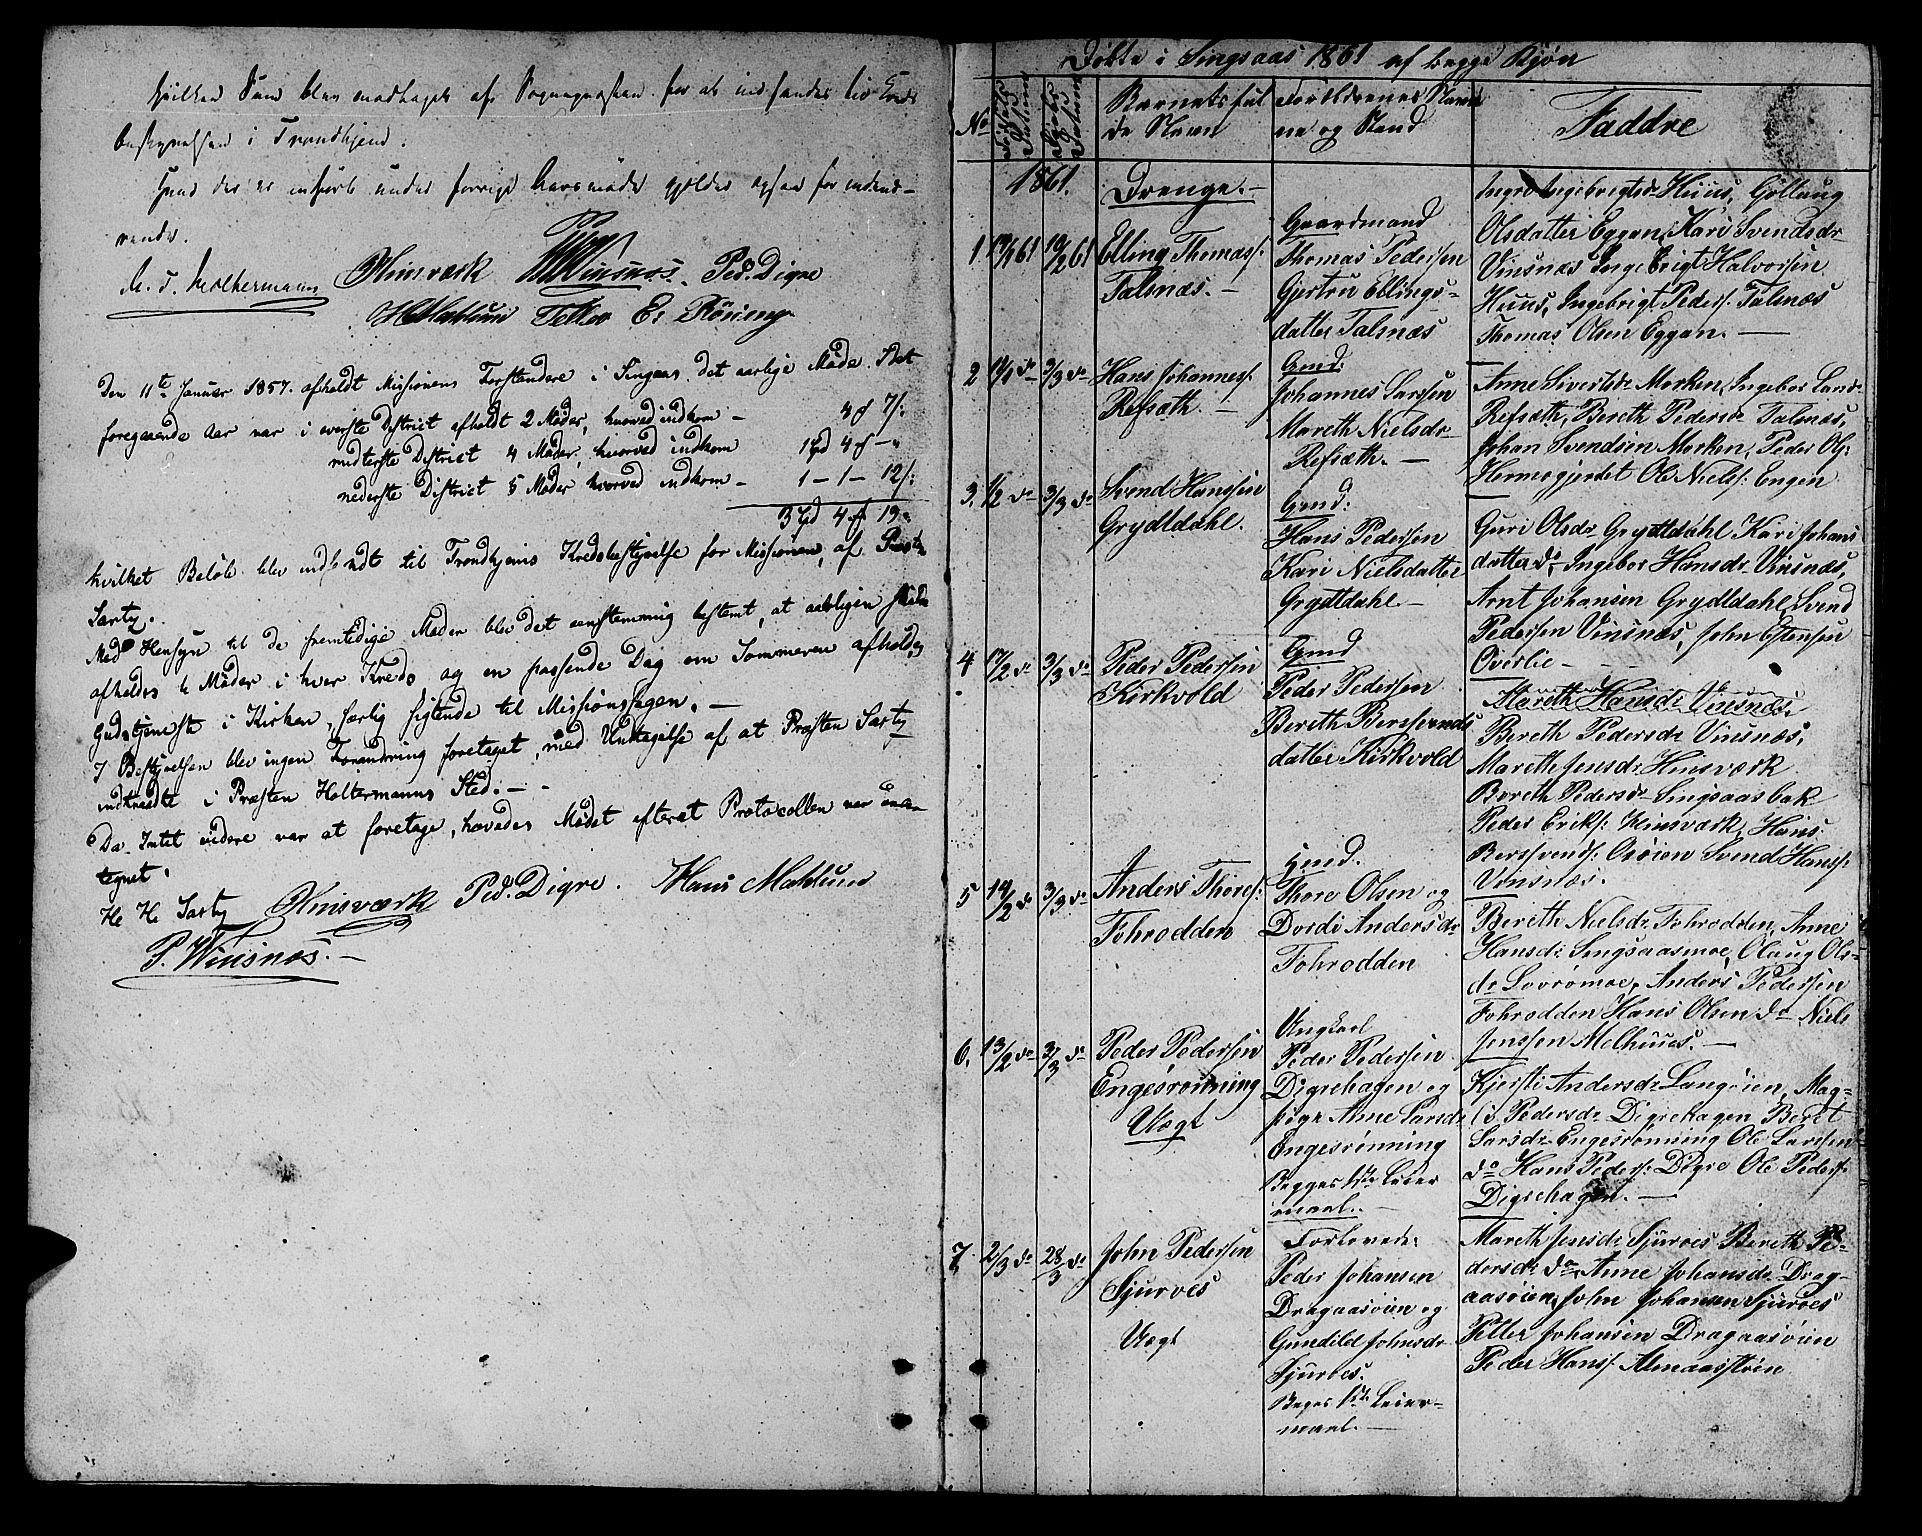 hvilken Sum blev modtaget af Sognepræsten for at indsendes til Kreds
bestyrelsen i Trondhjem.
Hvad der er anført under forrige Aarsmøde gjælder ogsaa for indevæ-
rende.
M. T. Holtermann Hinsværk P. Winsnes. Ped. Digre
H Mahlum Tetlov E. Röning
Den 11te Januar 1857. afholdt Missionens Forstandere i Singsaas det aarlige Møde. I det
foregaaende Aar var i øverste District afholdt 2 Møder, hvorved indkom — 4 7/:
midterste District 4 Møder, hvorved indkom 1 4 —
nederste District 5 Møder, hvorved indkom — 1 — 1 — 12/:
3 4 19
hvilket Beløb blev indsendt til Trondhjems Kredsbestyrelse for Missionen, af Præsten
Sarty.
Med Hensyn til de fremtidige Møder blev det eenstemmig bestemt, at aarligen skulde
afholdes 4 Møder i hver Kreds og en passende Dag om Sommeren afholdes
Gudstjeneste i Kirken, særlig sigtende til Missionssagen. —
I Bestyrelsen blev ingen Forandring foretaget, med Undtagelse af at Præsten Sarty
indtraadte i Præsten Holtermanns Sted. —
Da Intet videre var at foretage, hævedes Mødet efterat Protocollen var under-
tegnet.
H. H. Sarty Hinsværk Ped. Digre. Hans Mahlum
P. Winsnes. —
Døbte i Singsaas 1861 af begge Kjøn
No Fødsels Datum Daabs Datum Barnets ful Forældrenes Navn Faddre
de Navn ne og Stand
1861. Drenge. —
1 19/1 61 10/2 61 Elling Thomass:
Talsnæs. —
Gaardmand
Thomas Pedersen
Gjertru Ellings-
datter Talsnæs
Ingrd Ingebrigtsdr Huus, Göllaug
Olsdatter Eggen, Kari Svendsdr
Vinsnæs Ingebrigt Halvorsen
Huus, Ingebrigt Peders: Talsnæs
Thomas Olsen Eggen. —
2 19/1 do 3/3 do Hans Johanness:
Refsæth —
Gmd:
Johannes Larsen
Mareth Nielsdr
Refsæth. —
Anne Sivertsdr Morken, Ingebor Larsdr
Refsæth, Bereth Pedersdr Talsnæs,
Johan Svendsen Morken, Peder Ols:
Hermogjerdet Ole Niels: Engen
3. 1/2 do 3/3 do Svend Hanssen
Grydtdahl.
Gmd:
Hans Pedersen
Kari Nielsdatter
Grydtdahl. —
Guri Olsdr Grydtdahl Kari Johans
datter do, Ingebor Hansdr Vinsnæs,
Arnt Johansen Grydtdahl, Svend
Pedersen Vinsnæs, John Estensen
Overlie —
4 17/2 do 3/3 do Peder Pedersen
Kirkvold
Gmd
Peder Pedersen
Bereth Berssvends
datter Kirkvold
Mareth Hansdr Vinsnæs.
Bereth Pedersdr Vinsnæs,
Mareth Jensdr Hinsværk
Bereth Pedersdr Singsaasbak
Peder Eriks: Hinsværk, Hans
Berssvends: Osøien Svend Hanss:
Vinsnæs.
5 14/2 do 3/3 do Anders Thores:
Fohrodden
Hmd.
Thore Olsen og
Dordi Andersdr
Fohrodden
Bereth Nielsdr Fohrodden, Anne
Hansdr Singsaasmoe, Olaug Ols-
dr Lovrømoe, Anders Pedersen
Fohrodden Hans Olsen do Niels
Jenssen Melhuus. —
6. 13/2 do 3/3 do Peder Pedersen
Engesrønning
Uægt
Ungkarl
Peder Pedersen
Digrehagen og
pige Anne Larsdr
Engesrønning
Begges 1ste Leier
maal. —
Kjersti Andersdr Langøien, Mag-
li Pedersdr Digrehagen Beret
Larsdr Engesrønning Ole Larssen
do Hans Peders: Digre Ole Peders:
Digrehagen. —
7 2/3 do 28/3 do John Pedersen
Sjurves
Uægt
Forlovede:
Peder Johansen
Dragaasøien og
Gundild Johnsdr
Sjurves.
Beges 1ste Leier-
maal. —
Mareth Jensdr Sjurves Bereth Pe-
dersdr do Anne Johansdr Drag-
aasøien, John Johansen Sjurves
Petter Johansen Dragaasøien
Peder Hans: Almaasstrøen